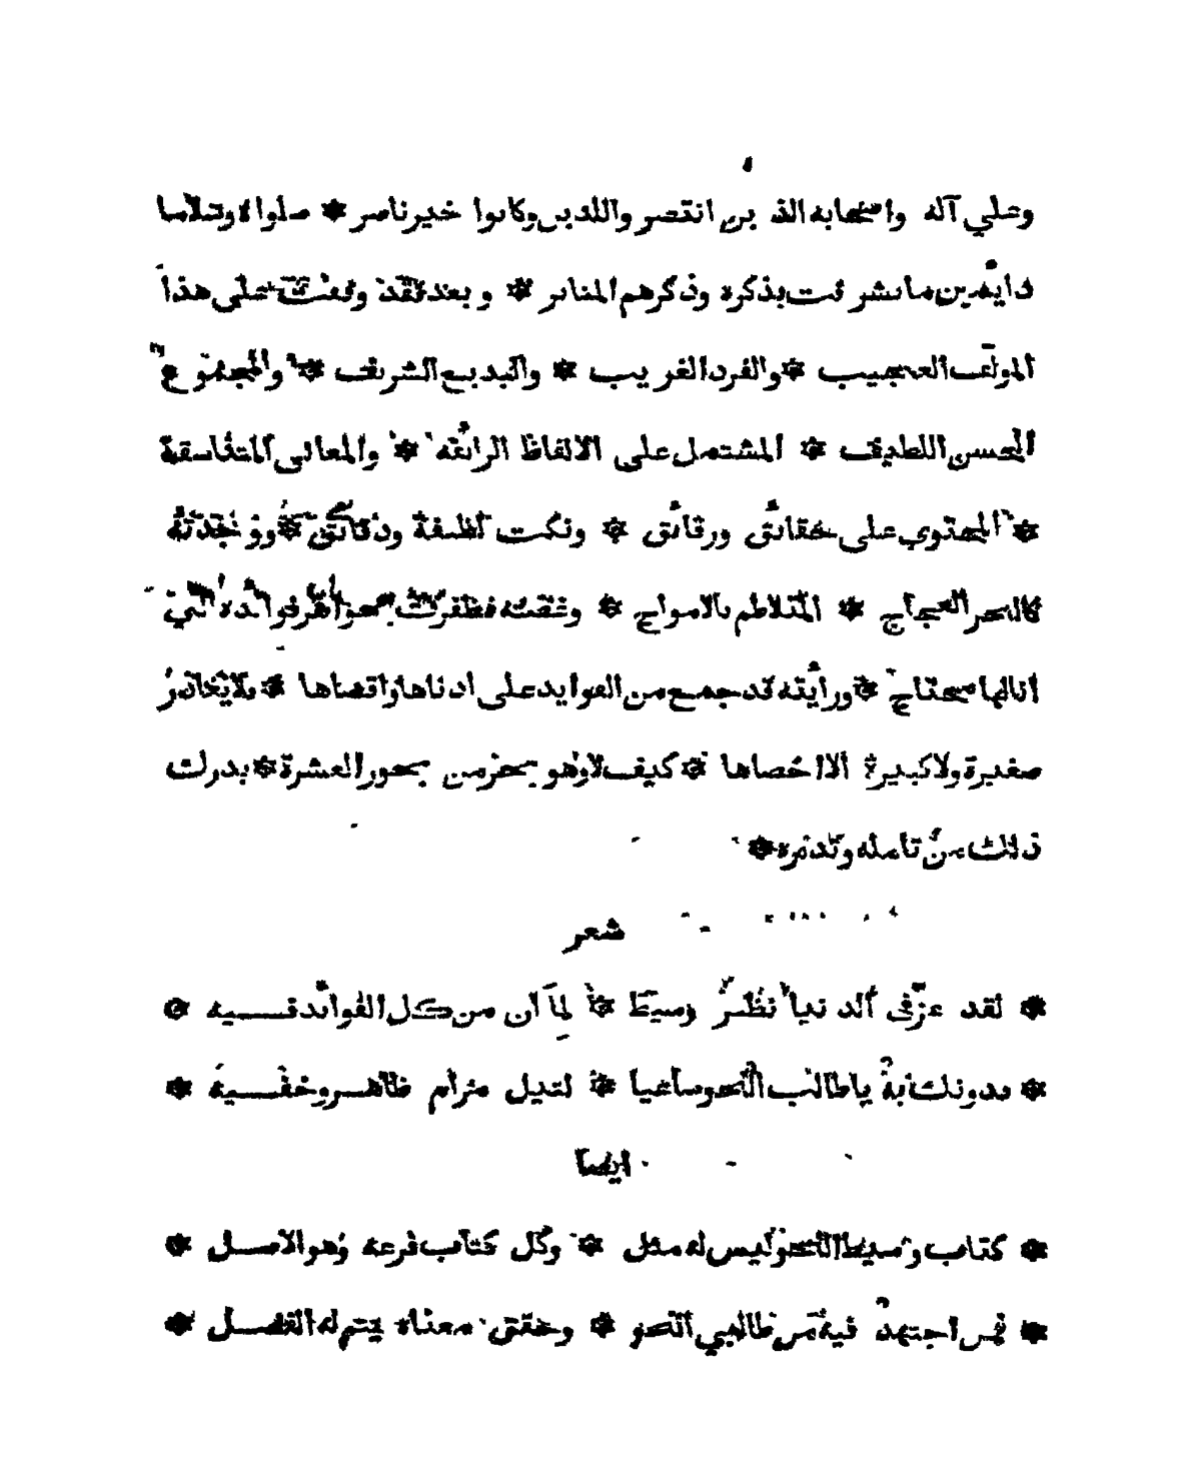 وعلي آله واصحابه الذين انتصر واللدين وكانوا خير ناصر * صلواة وسلاما
دايمين ما شرفت بذكره وذكرهم المنابر * وبعد فقد وقفت على هذا
المولف العجيب * والفرد الغريب * والبديع الشريف * والمجموع
الحسن اللطيف * المشتمل على الالفاظ الرائقه * والمعاني المتناسقة
* المحتوي على حقائق ورقائق * ونكت لطيفة ودقائق * ووجدته
كالبحر العجاج * المتلاطم بالامواج * وغصته فظفرت بجواهر فوائده التي
انا اليها محتاج * ورأيته قد جمع من الفوايد على ادناها واقصاها * فلا يغادر
صغيرة ولا كبيرة الا احصاها * كيف لا وهو بحر من بحور العشرة * يدرك
ذلك من تامله وتدبره *
شعر
* لقد عز في الدنيا نظير وسيط * لما ان من كل الفوائد فيه *
* فدونك به يا طالب النحو ساعيا * لنيل مرام ظاهر وخفيه *
ايضا
* كتاب وسيط النحو ليس له مثل * وكل كتاب فرعه وهو الاصل *
* فمن اجتهد فيه من طالبي النحو * وحقق معناه يتم له الفضل *